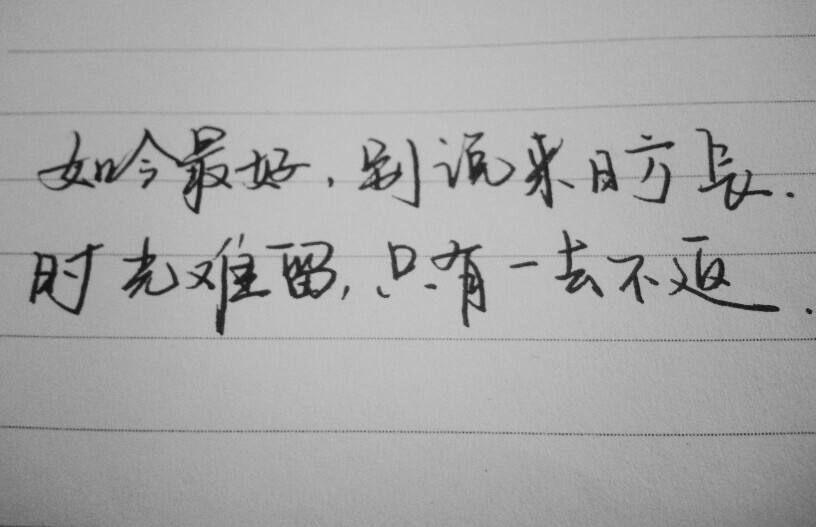 如今最好,别说来日方长.
时光难留,只有一去不返.